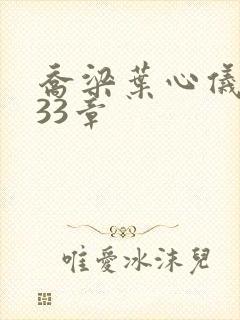 喬梁葉心儀
33章
唯愛冰沫兒